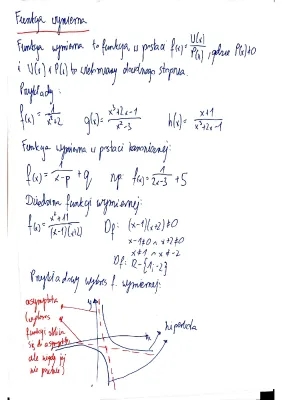 Funkcja wymierna
Funkcja wymierna to funkcja w postaci f(x) = U(x)/P(x), gdzie P(x)≠0
i U(x) i P(x) to wielomiany dowolnego stopnia.
Przykłady:
f(x) = 1/x²+2 g(x) = x³+2x-1/x²-3 h(x) = x+1/x²+2x-1
Funkcja wymierna w postaci kanonicznej:
f(x) = 1/x-p + q np: f(x) = 1/2x-3 + 5
Dziedzina funkcji wymiernej:
f(x) = x²+11/(x-1)(x+2) Df: (x-1)(x+2)≠0
x-1≠0 ∧ x+2≠0
x≠1 ∧ x≠-2
Df: R-{1;-2}
Przykładowy wykres f. wymiernej:
asymptota
(wykres
funkcji zbliża
się do asymptoty
ale nigdy jej
nie przetnie)
y
x
hiperbola